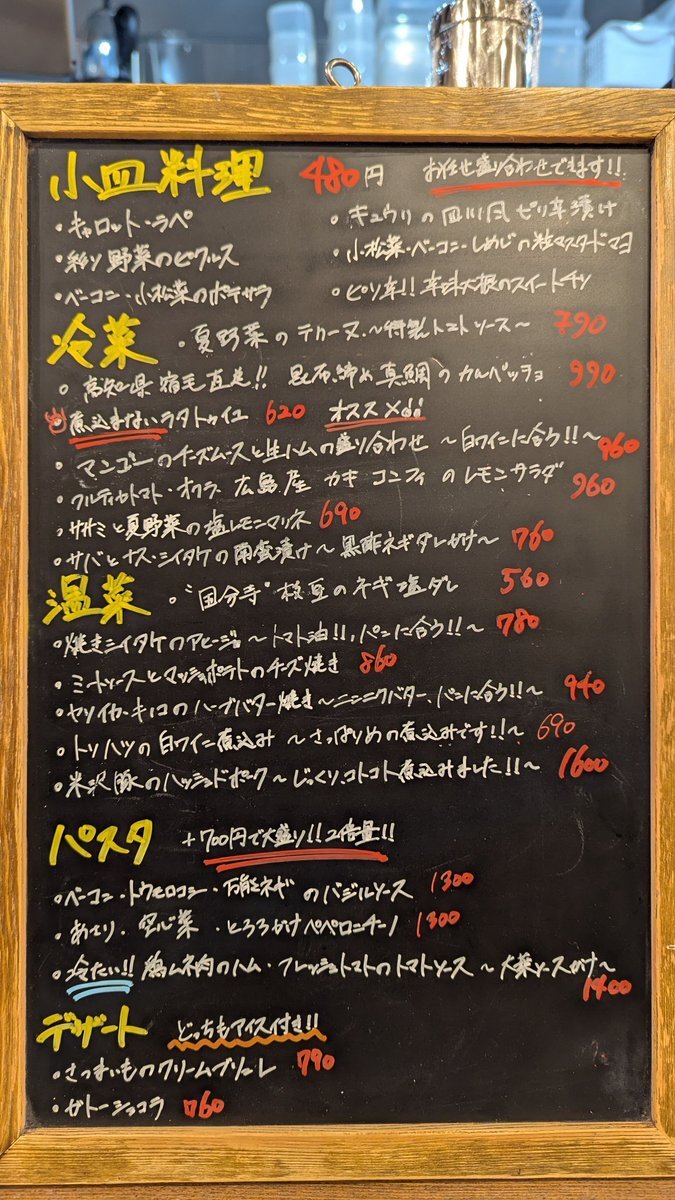 小皿料理 480円 お任せ盛り合わせできます!!
・キャロット・ラペ
・彩り野菜のピクルス
・ベーコン・小松菜のポテサラ
・キュウリの四川風ピリ辛漬け
・小松菜・ベーコン・しめじの粒マスタードマヨ
・ピリ辛!! 辛味大根のスイートチリ
冷菜 ・夏野菜のテリーヌ〜特製トマトソース〜 790
・高知県宿毛直送!! 昆布締め真鯛のカルパッチョ 990
・煮込まないラタトゥイユ 620 オススメ!!
・マンゴーのチーズムースと生ハムの盛り合わせ 〜白ワインに合う!!〜 960
・フルティカトマト・オクラ 広島産 カキ コンフィ のレモンサラダ 960
・ササミと夏野菜の塩レモンマリネ 690
・サバとナス・シイタケの南蛮漬け〜黒酢ネギダレがけ〜 760
温菜 ・"国分寺"枝豆のネギ塩ダレ 560
・焼きシイタケのアヒージョ 〜トマト油!!、パンに合う!!〜 780
・ミートソースとマッシュポテトのチーズ焼き 860
・ヤリイカ・キノコのハーブバター焼き〜ニンニクバター、パンに合う!!〜 940
・トリハツの白ワイン煮込み 〜さっぱりめの煮込みです!!〜 690
・米沢豚のハッシュドポーク〜じっくり、コトコト煮込みました!!〜 1600
パスタ +700円で大盛り!! 2倍量!!
・ベーコン・トウモロコシ・万能ネギ のバジルソース 1300
・あさり・空心菜・とろろがけペペロンチーノ 1300
・冷たい!! 鶏ムネ肉のハム・フレッシュトマトのトマトソース 〜大葉ソースがけ〜
1400
デザート どっちもアイス付き!!
・さつまいものクリームブリュレ 790
・ガトーショコラ 760